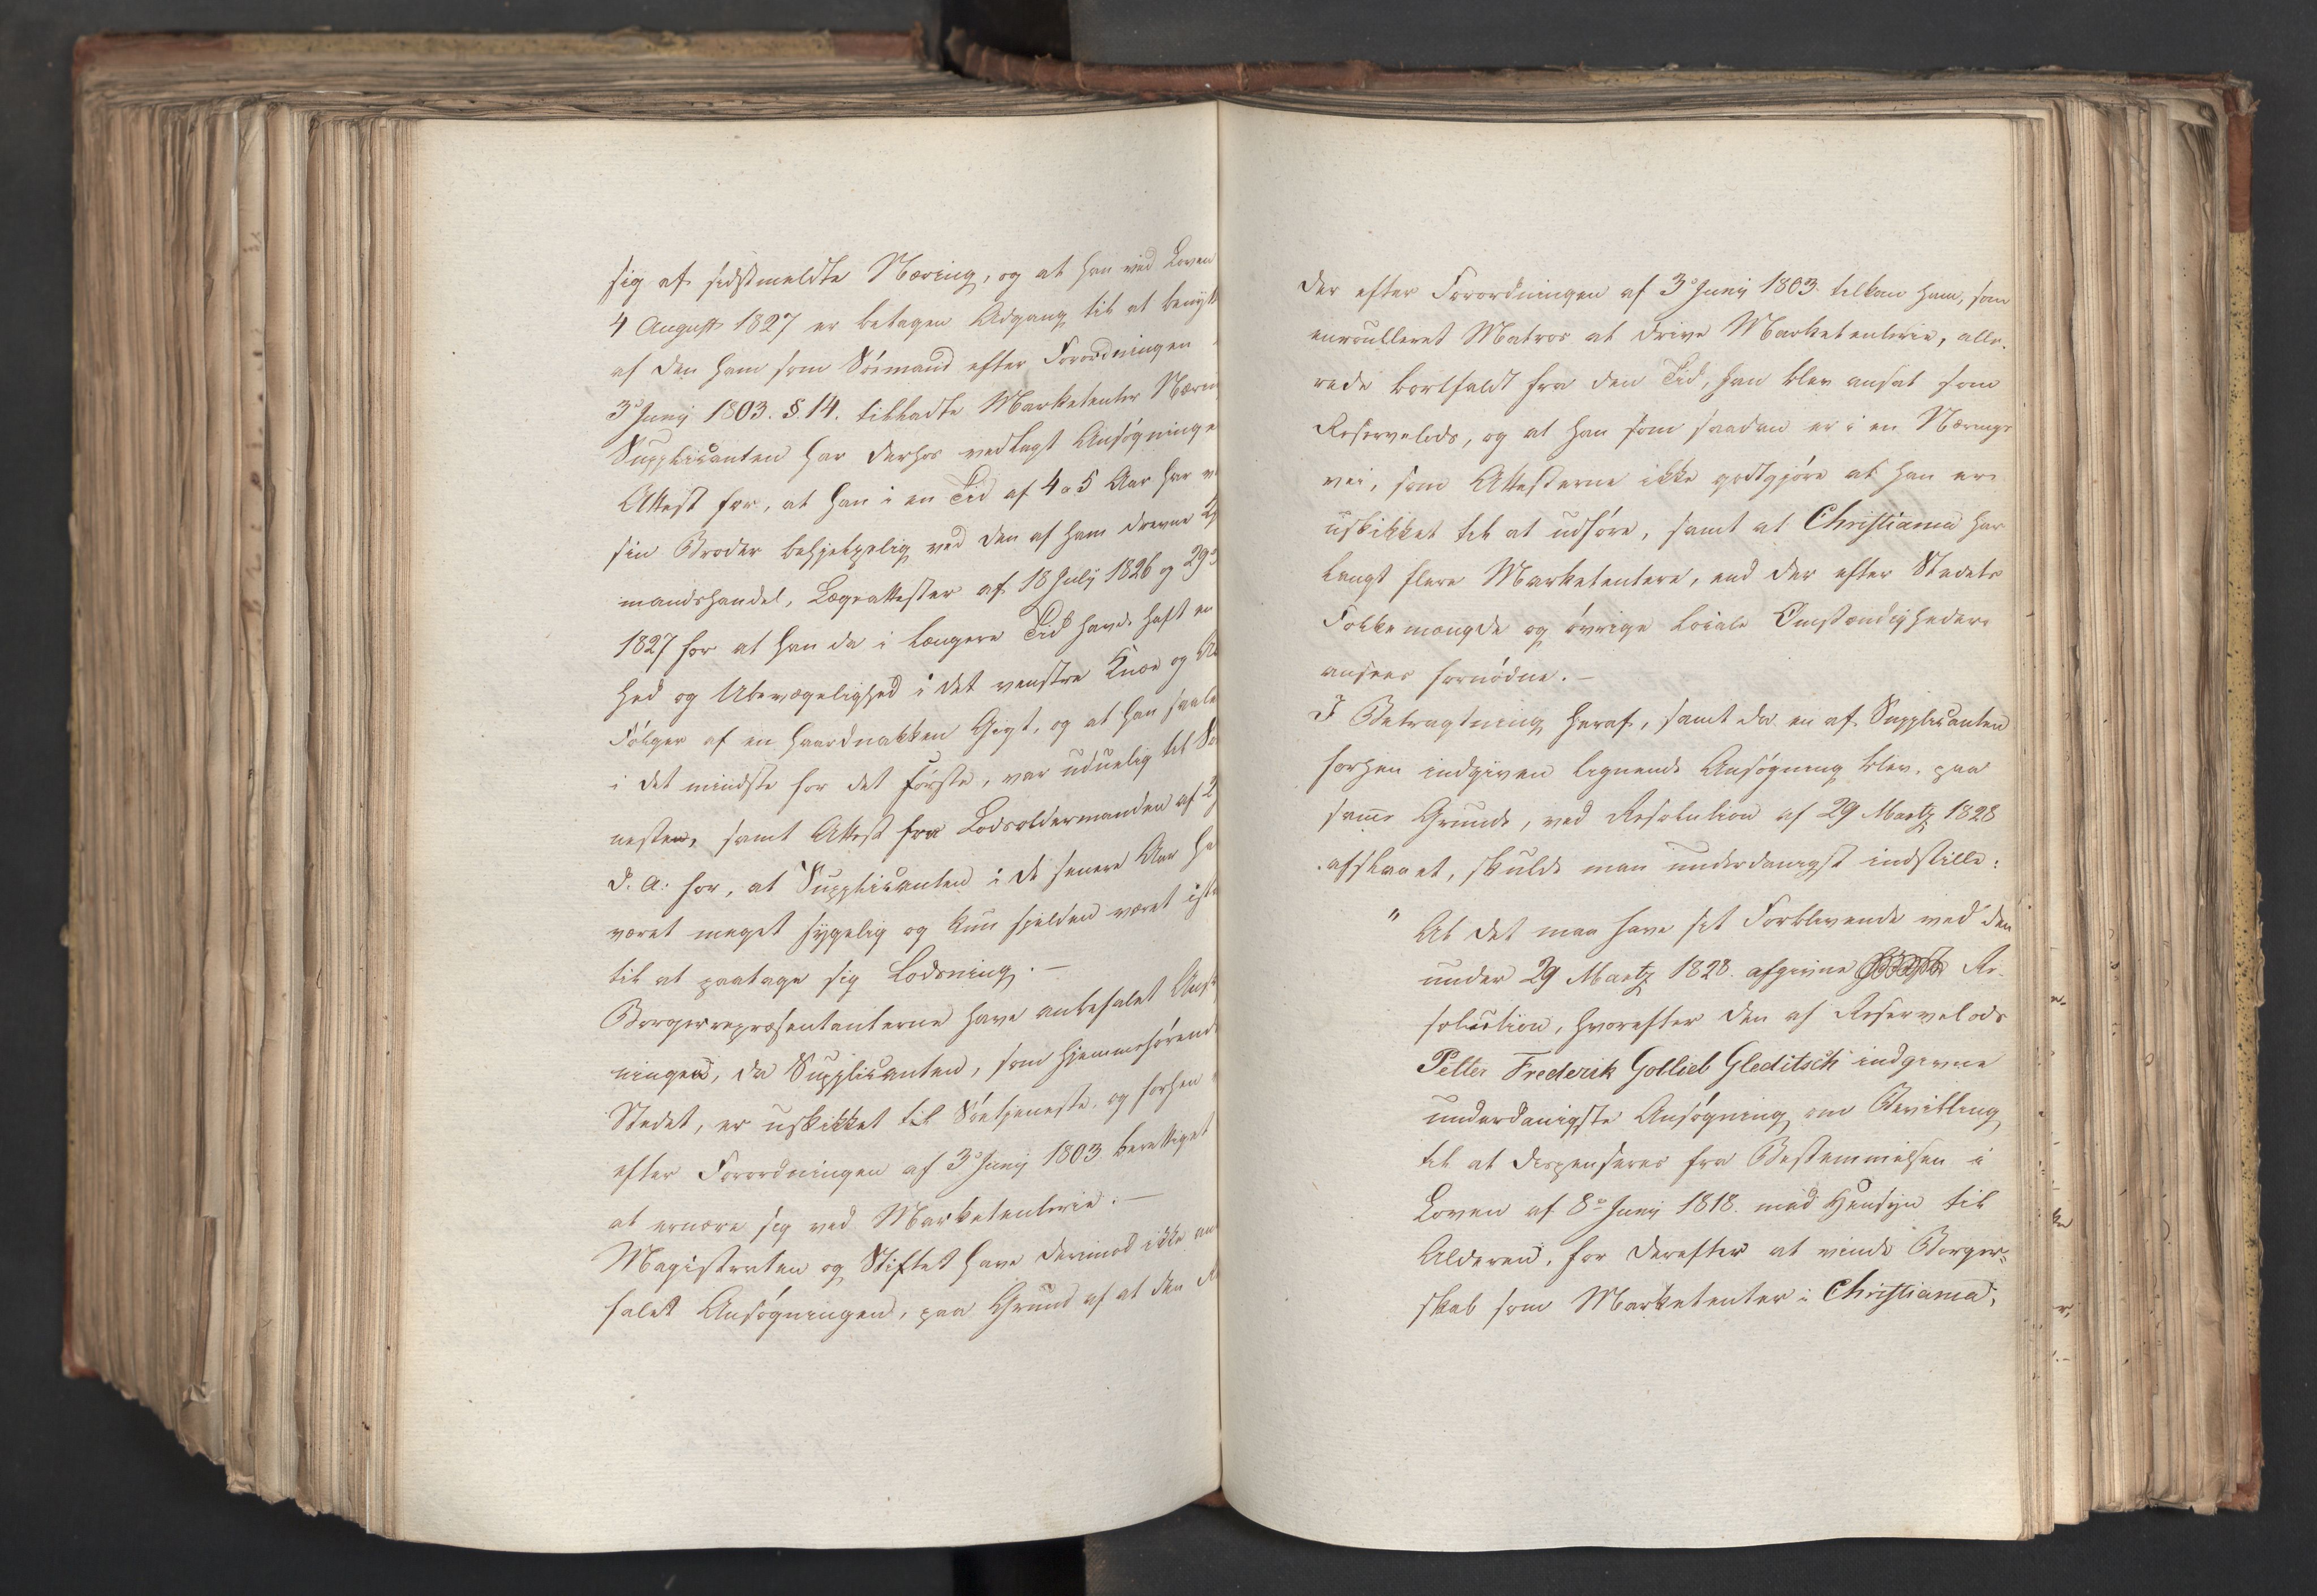 sig af sidstmeldte Næring, og at han ved Loven
4 August 1827 er betagen Adgang til at benytt
af den ham som Söemand efter Forordningen
3d Juny 1803. § 14. tilladte Marketenter Nærin
Supplicanten har derhos vedlagt Ansögninge
Attest for, at han i en Tid af 4 a 5 Aar har v
sin Broder behjelpelig ved den af ham drevne
mandshandel, Lægeattester af 18 July 1826 og 29
1827 for at han da i længere Tid havde haft en
hed og Ubevægelighed i det venstre Knæ og
Fölger af en haardnakken Gigt, og at han saale
i det mindste for det förste, var uduelig til
nesten, samt Attest fra Lodsoldermanden af 2
d. A. for, at Supplicanten i de senere Aar ha
været meget sygelig og kun sjelden været ist
til at paatage sig Lodsning. —
Borgerrepræsentanterne have anbefalet Ans
ningen, da Supplicanten, som hjemmehörende
Stedet, er uskikket til Söetjeneste, og forhen
efter Forordningen af 3d Juny 1803 berettiget
at ernære sig ved Marketenterie. —
Magistraten og Stiftet have derimod ikke an
falet Ansögningen, paa Grund af at den
der efter Forordningen af 3d Juny 1803. tilkom ham, som
enroulleret Matros at drive Marketenterie, alle-
rede bortfaldt fra den Tid, han blev ansat som
Reservelods, og at han som saadan er i en Nærings
vei, som Attesterne ikke godtgjöre at han er
uskikket til at udföre, samt at Christiania har
langt flere Marketentere, end der efter Stedets
Folkemængde og övrige locale Omstændigheder
ansees fornödne. —
I Betragtning heraf, samt da en af Supplicanten
forhen indgiven lignende Ansögning blev, paa
samme Grunde, ved Resolution af 29 Martz 1828
afslaaet, skulde man underdanigst indstille:
" At det maa have sit Forblivende ved den
under 29 Martz 1828. afgivne Re-
solution, hvorefter den af Reservelods
Petter Frederik Gotlieb Gleditsch indgivne
underdanigste Ansögning om Bevilling
til at dispenseres fra Bestemmelsen i
Loven af 8de Juny 1818. med Hensyn til
Alderen, for derefter at vinde Borger-
skab som Marketenter i Christiania,